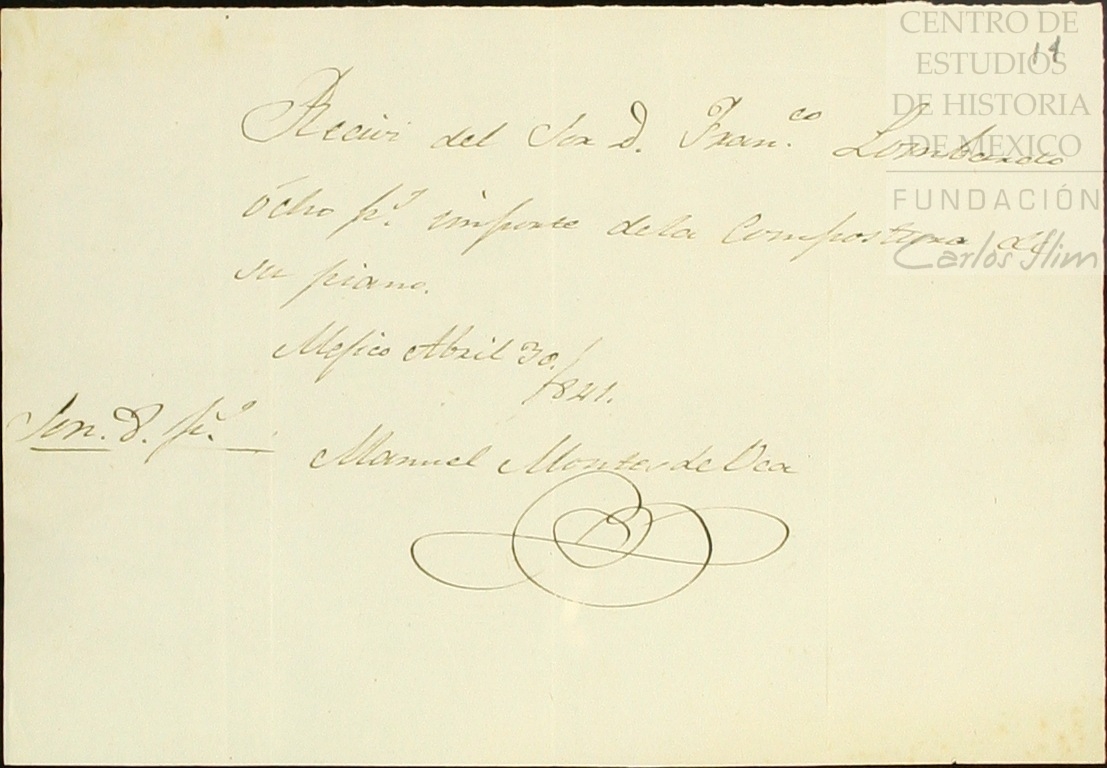 CENTRO DE
ESTUDIOS
DE HISTORIA
DE MÉXICO
FUNDACIÓN
Carlos Slim
Recivi del Sor D. Fran.co Lombardo
ócho p.s importe de la Compostura de
su piano.
Mejico Abril 30./
1841.
Son. 8. p.s
Manuel Montes de Oca